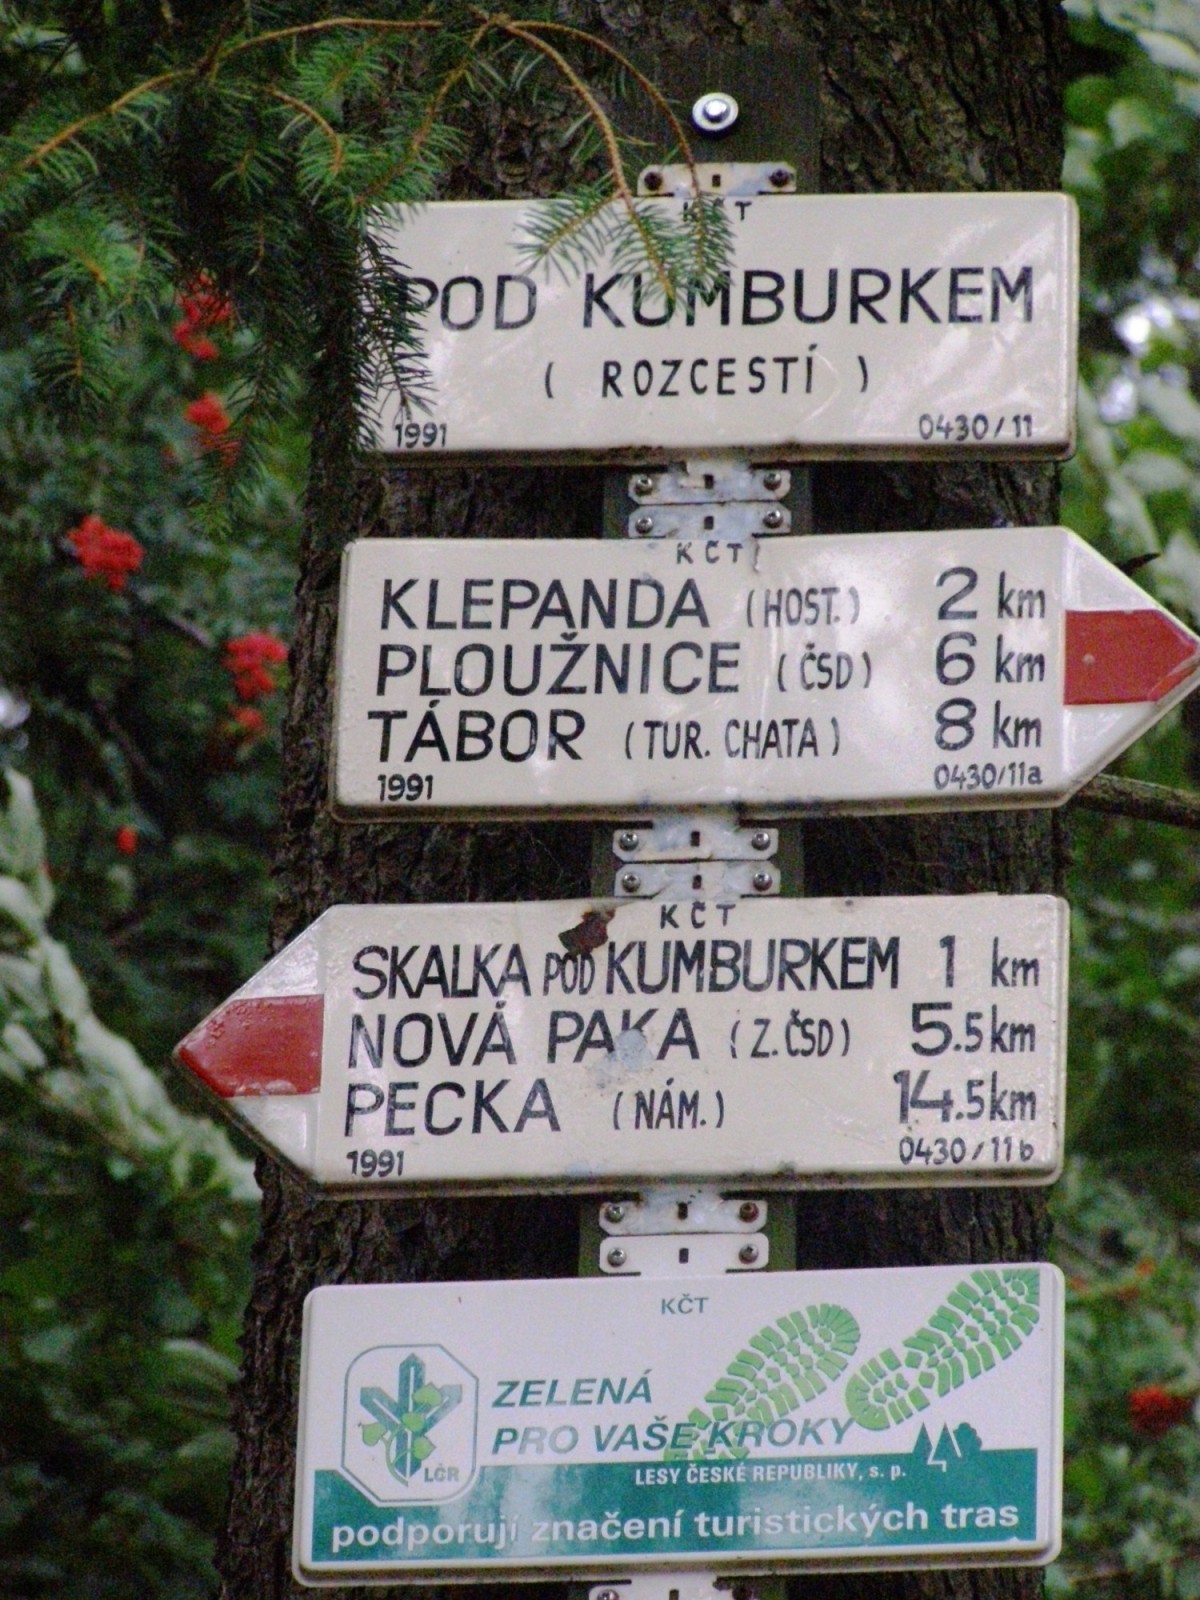 KČT
POD KUMBURKEM
( ROZCESTÍ )
1991 0430/11
KČT
KLEPANDA (HOST.) 2 km
PLOUŽNICE (ČSD) 6 km
TÁBOR (TUR. CHATA) 8 km
1991 0430/11a
KČT
SKALKA POD KUMBURKEM 1 km
NOVÁ PAKA (Z.ČSD) 5.5 km
PECKA (NÁM.) 14.5 km
1991 0430/11b
KČT
ZELENÁ
PRO VAŠE KROKY
LČR
LESY ČESKÉ REPUBLIKY, s. p.
podporují značení turistických tras